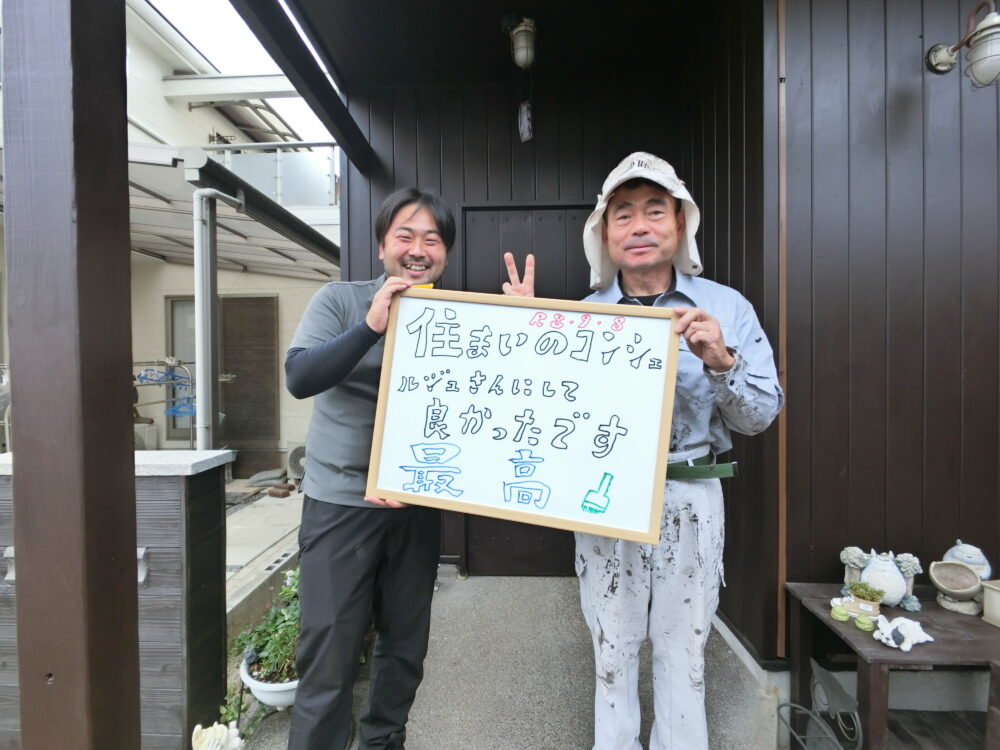 R8.9.8
住まいのコンシェ
ルジュさんにして
良かったです
最高